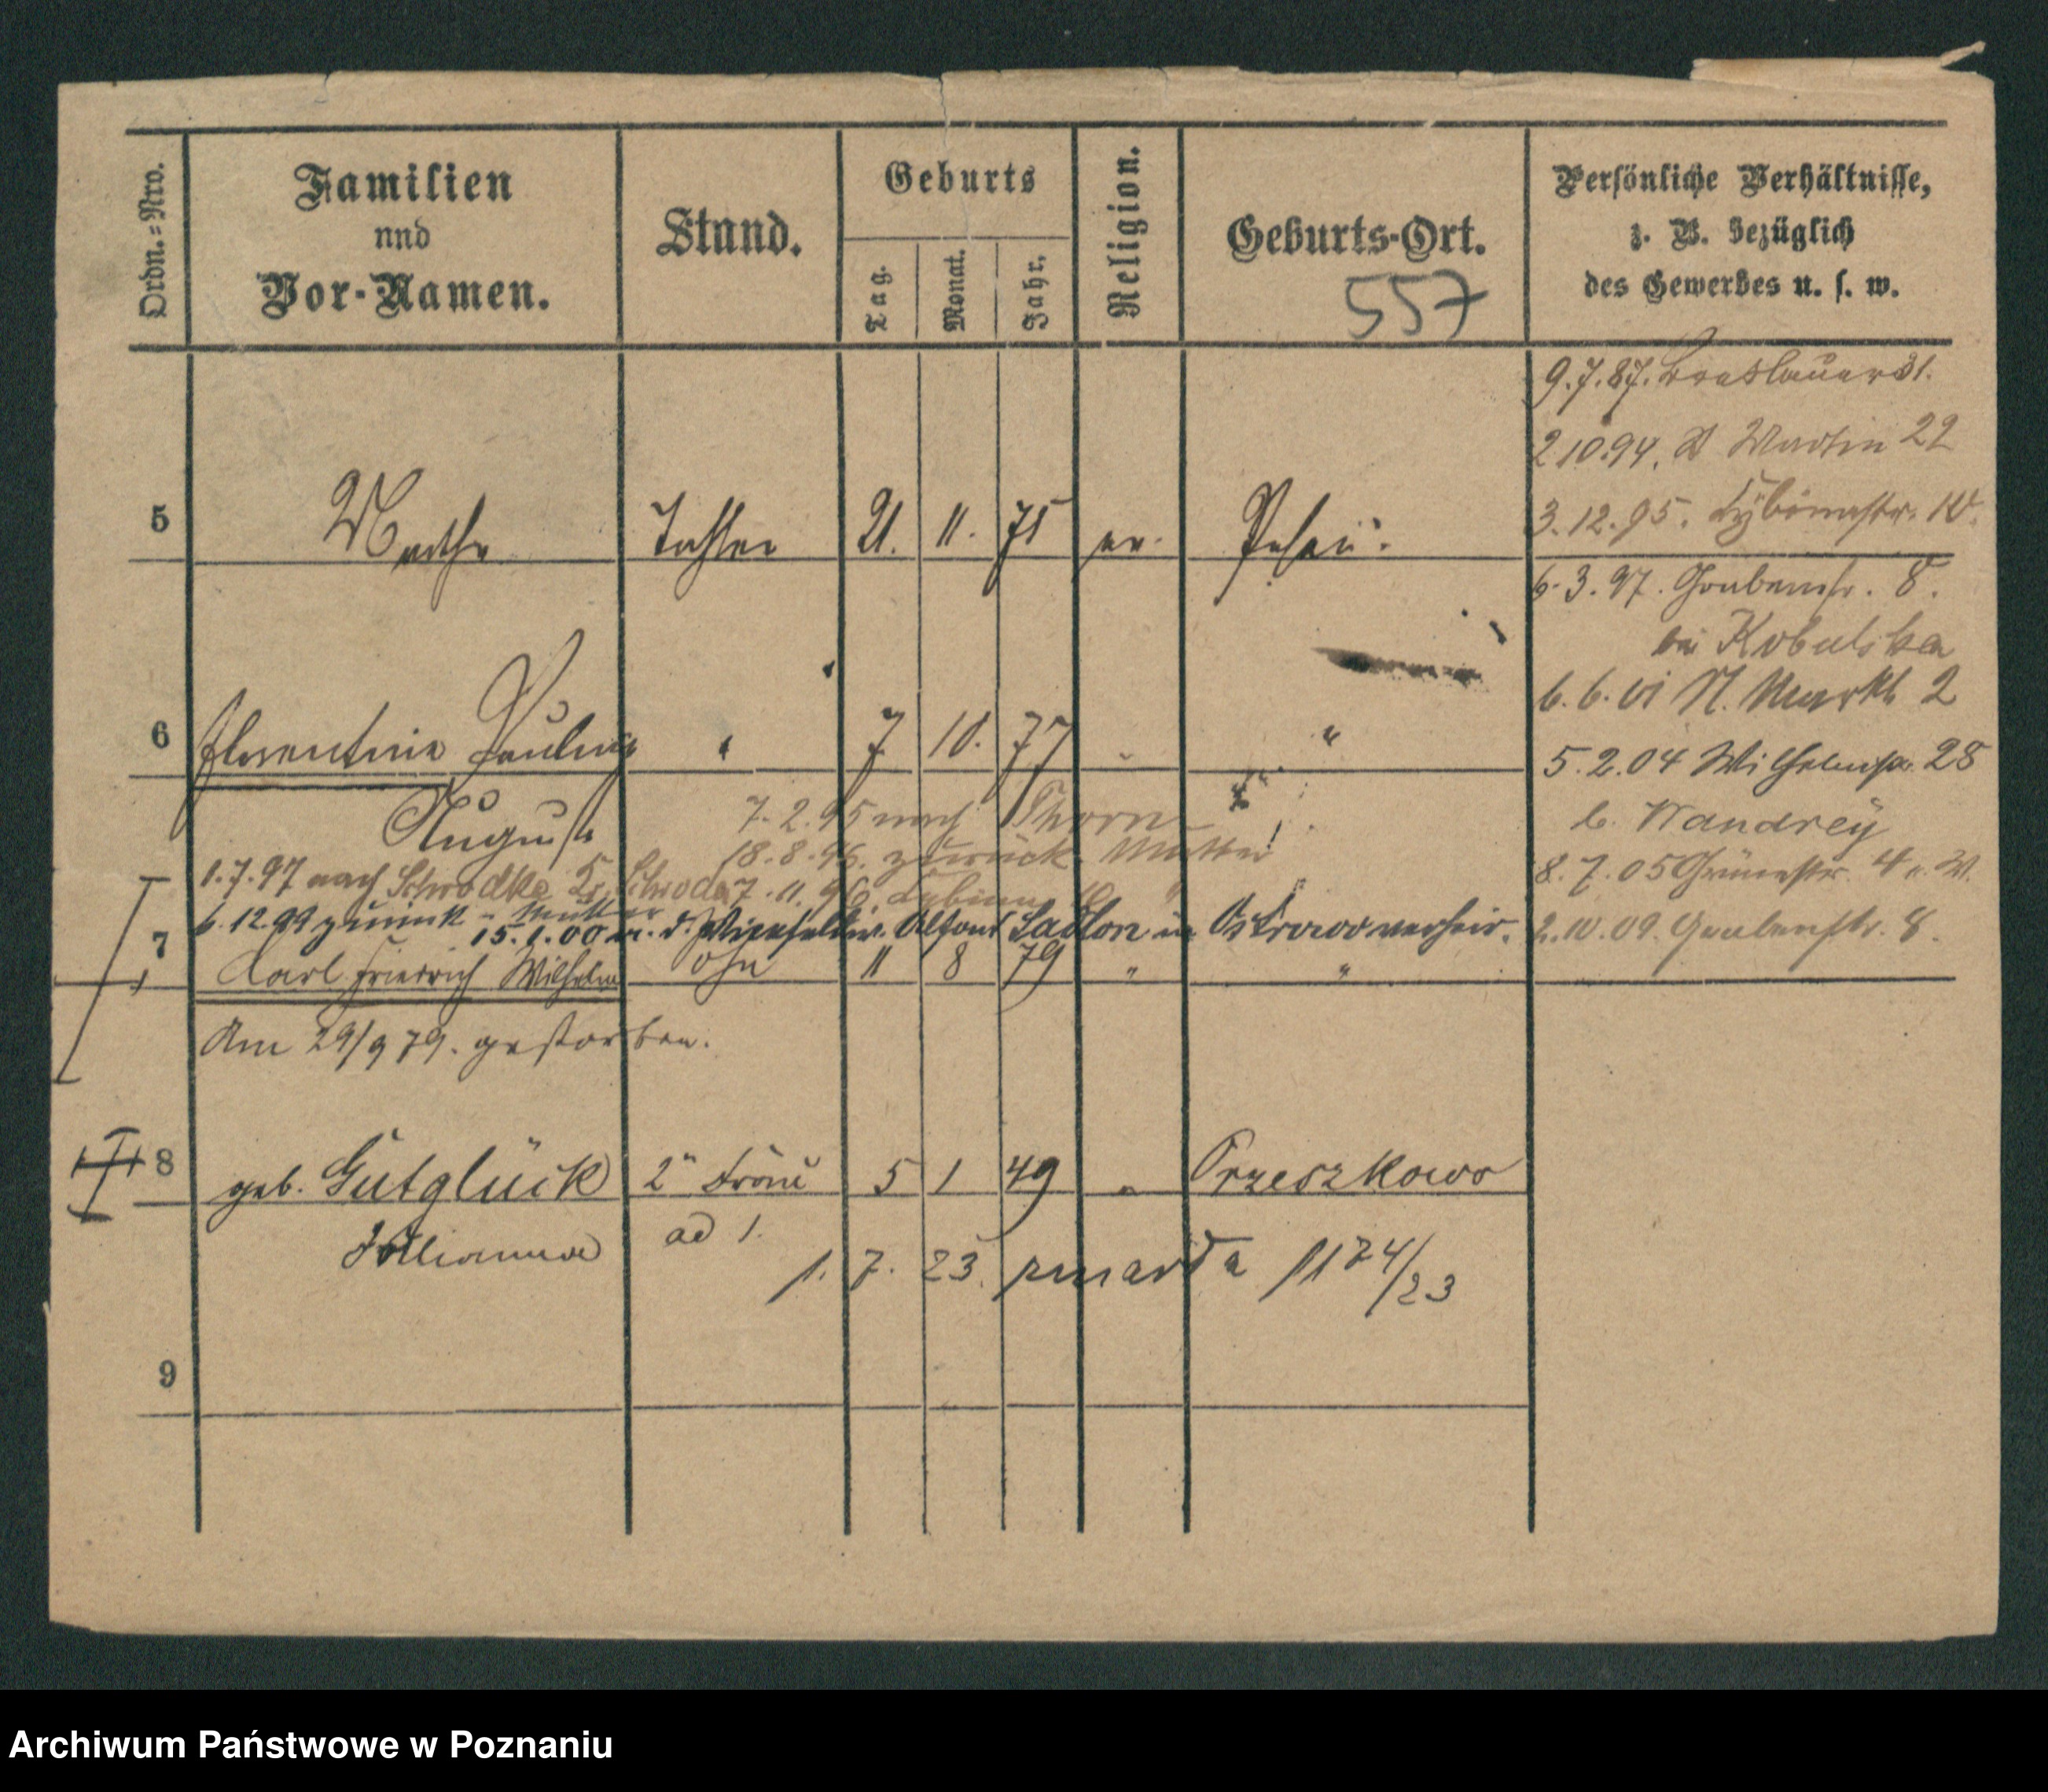 Ordn.=Nro.
Familien
und
Vor-Namen.
Stand.
Geburts
Tag.
Monat.
Jahr.
Religion.
Geburts-Ort.
557
Persönliche Verhältnisse,
z. B. bezüglich
des Gewerbes u. s. w.
9.7.87. Breslauer 31.
2.10.94. St Martin 22
3.12.95.
5 Marthe Tochter 21. 11. 75 ev. Posen.
6.3.97. Grabenstr. 8.
bei Kobulska
6.6.01 N. Markt 2
6 Florentine Pauline " 7 10. 77 " "
5.2.04 Wilhelmspl. 28
b. Nandrey
Auguste
7.2.95 nach Thorn
18.8.96. zurück Mutter
8.7.05 Grünestr. 4
1.7.97 nach Schrodke Kr. Schroda 7.11.96.
6.12.99 zurück - Mutter
15.1.00 m. d. Alfons Sadlon in Ostrowo verheir.
2.10.09. Grabenstr. 8.
7 Carl Friedrich Wilhelm Sohn 11 8 79 " "
Am 29/9 79. gestorben.
8 geb. Gutglück 2" Frau 5 1 49 " Orzeszkowo
Julianna
ad 1.
1. 7. 23. zmarła 1174/23
9
Archiwum Państwowe w Poznaniu